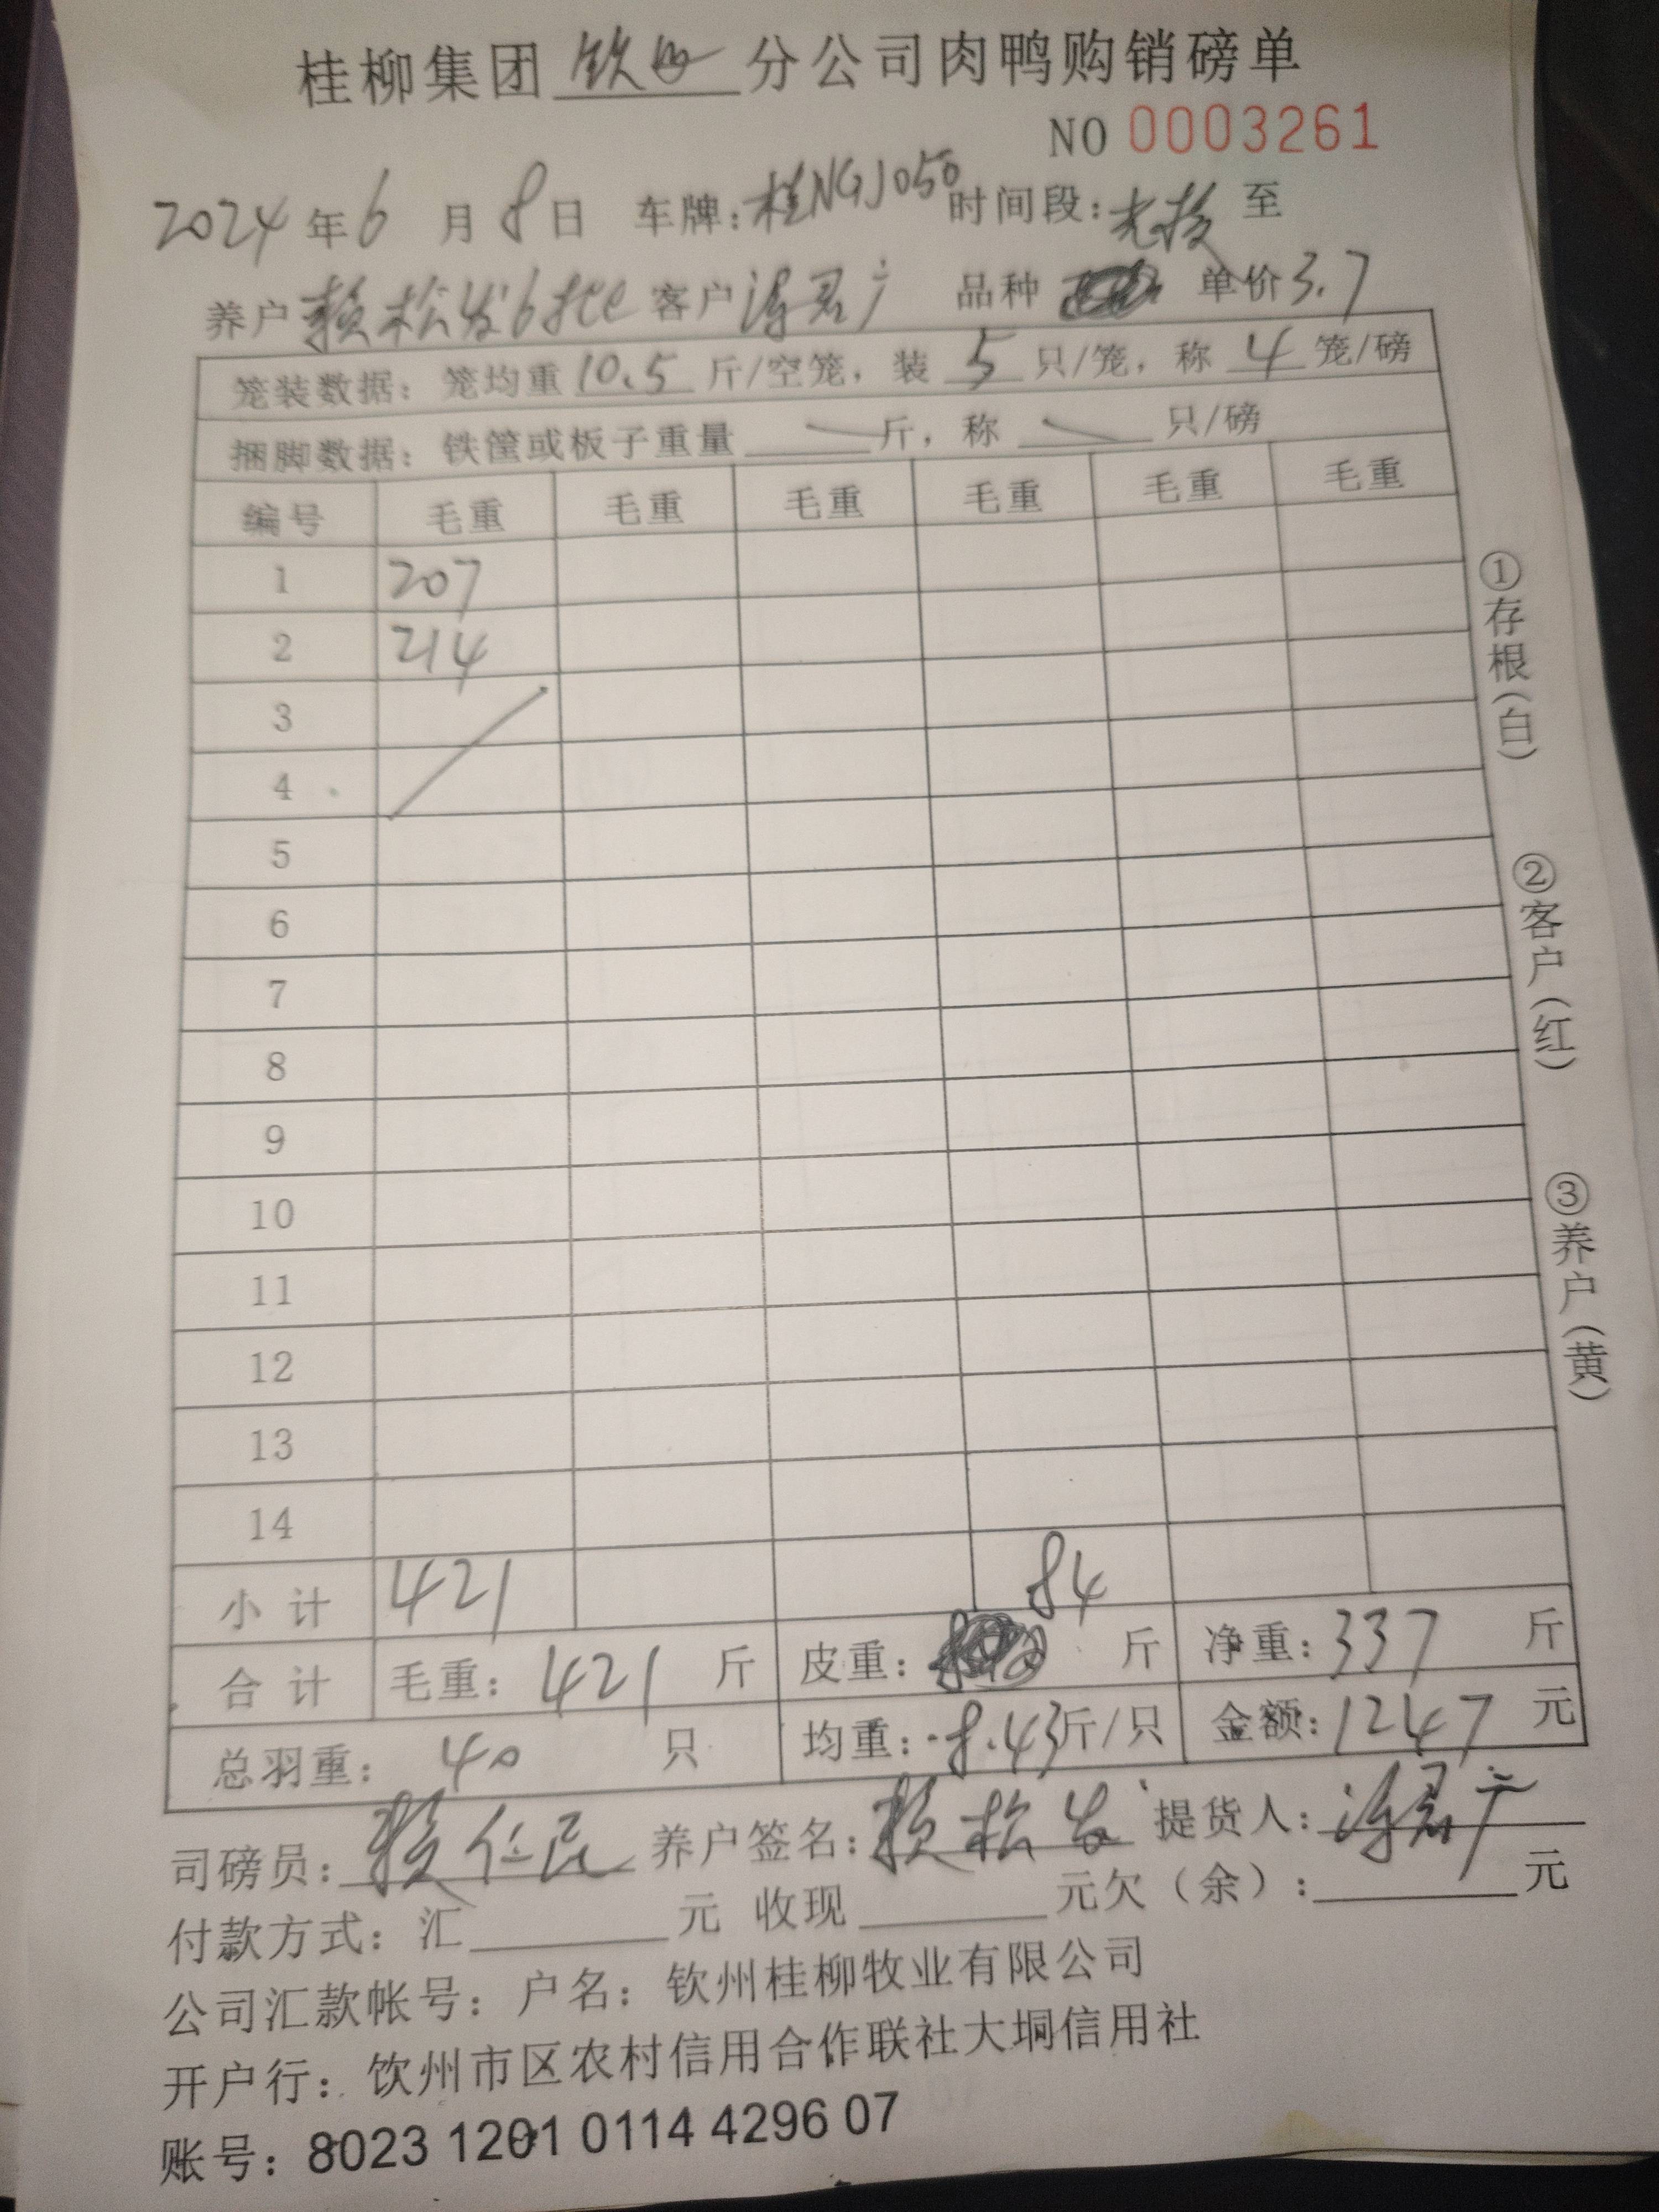 桂柳集团钦州分公司肉鸭购销磅单
NO 0003261
2024年6月8日 车牌:桂NGJ050 时间段: 至
养户赖松发6批 客户 品种 单价3.7
笼装数据：笼均重10.5斤/空笼，装5只/笼，称4笼/磅
捆脚数据：铁筐或板子重量 斤，称 只/磅
编号 毛重 毛重 毛重 毛重 毛重 毛重
1 207
2 214
3
4
5
6
7
8
9
10
11
12
13
14
小计 421
84
合计 毛重：421斤 皮重： 斤 净重：337斤
总羽重：40只 均重：8.43斤/只 金额：1247元
司磅员：赖仁民 养户签名：赖松发 提货人：
付款方式：汇 元 收现 元欠（余）： 元
公司汇款帐号：户名：钦州桂柳牧业有限公司
开户行：钦州市区农村信用合作联社大垌信用社
账号：8023 1201 0114 4296 07
①存根（白）
②客户（红）
③养户（黄）